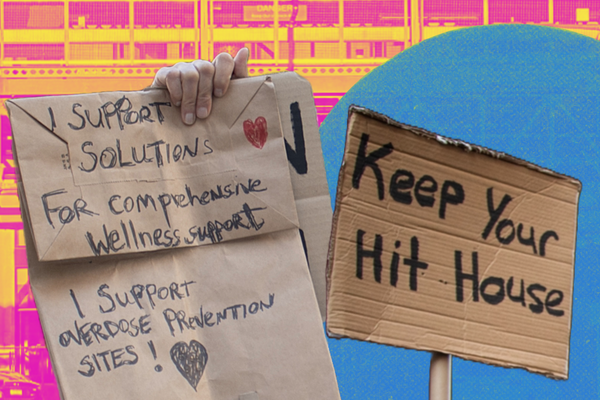 DANGER
I SUPPORT
SOLUTIONS
FOR comprehensive
Wellness support
I SUPPORT
OVERDOSE PREVENTION
SITES!
Keep Your
Hit House